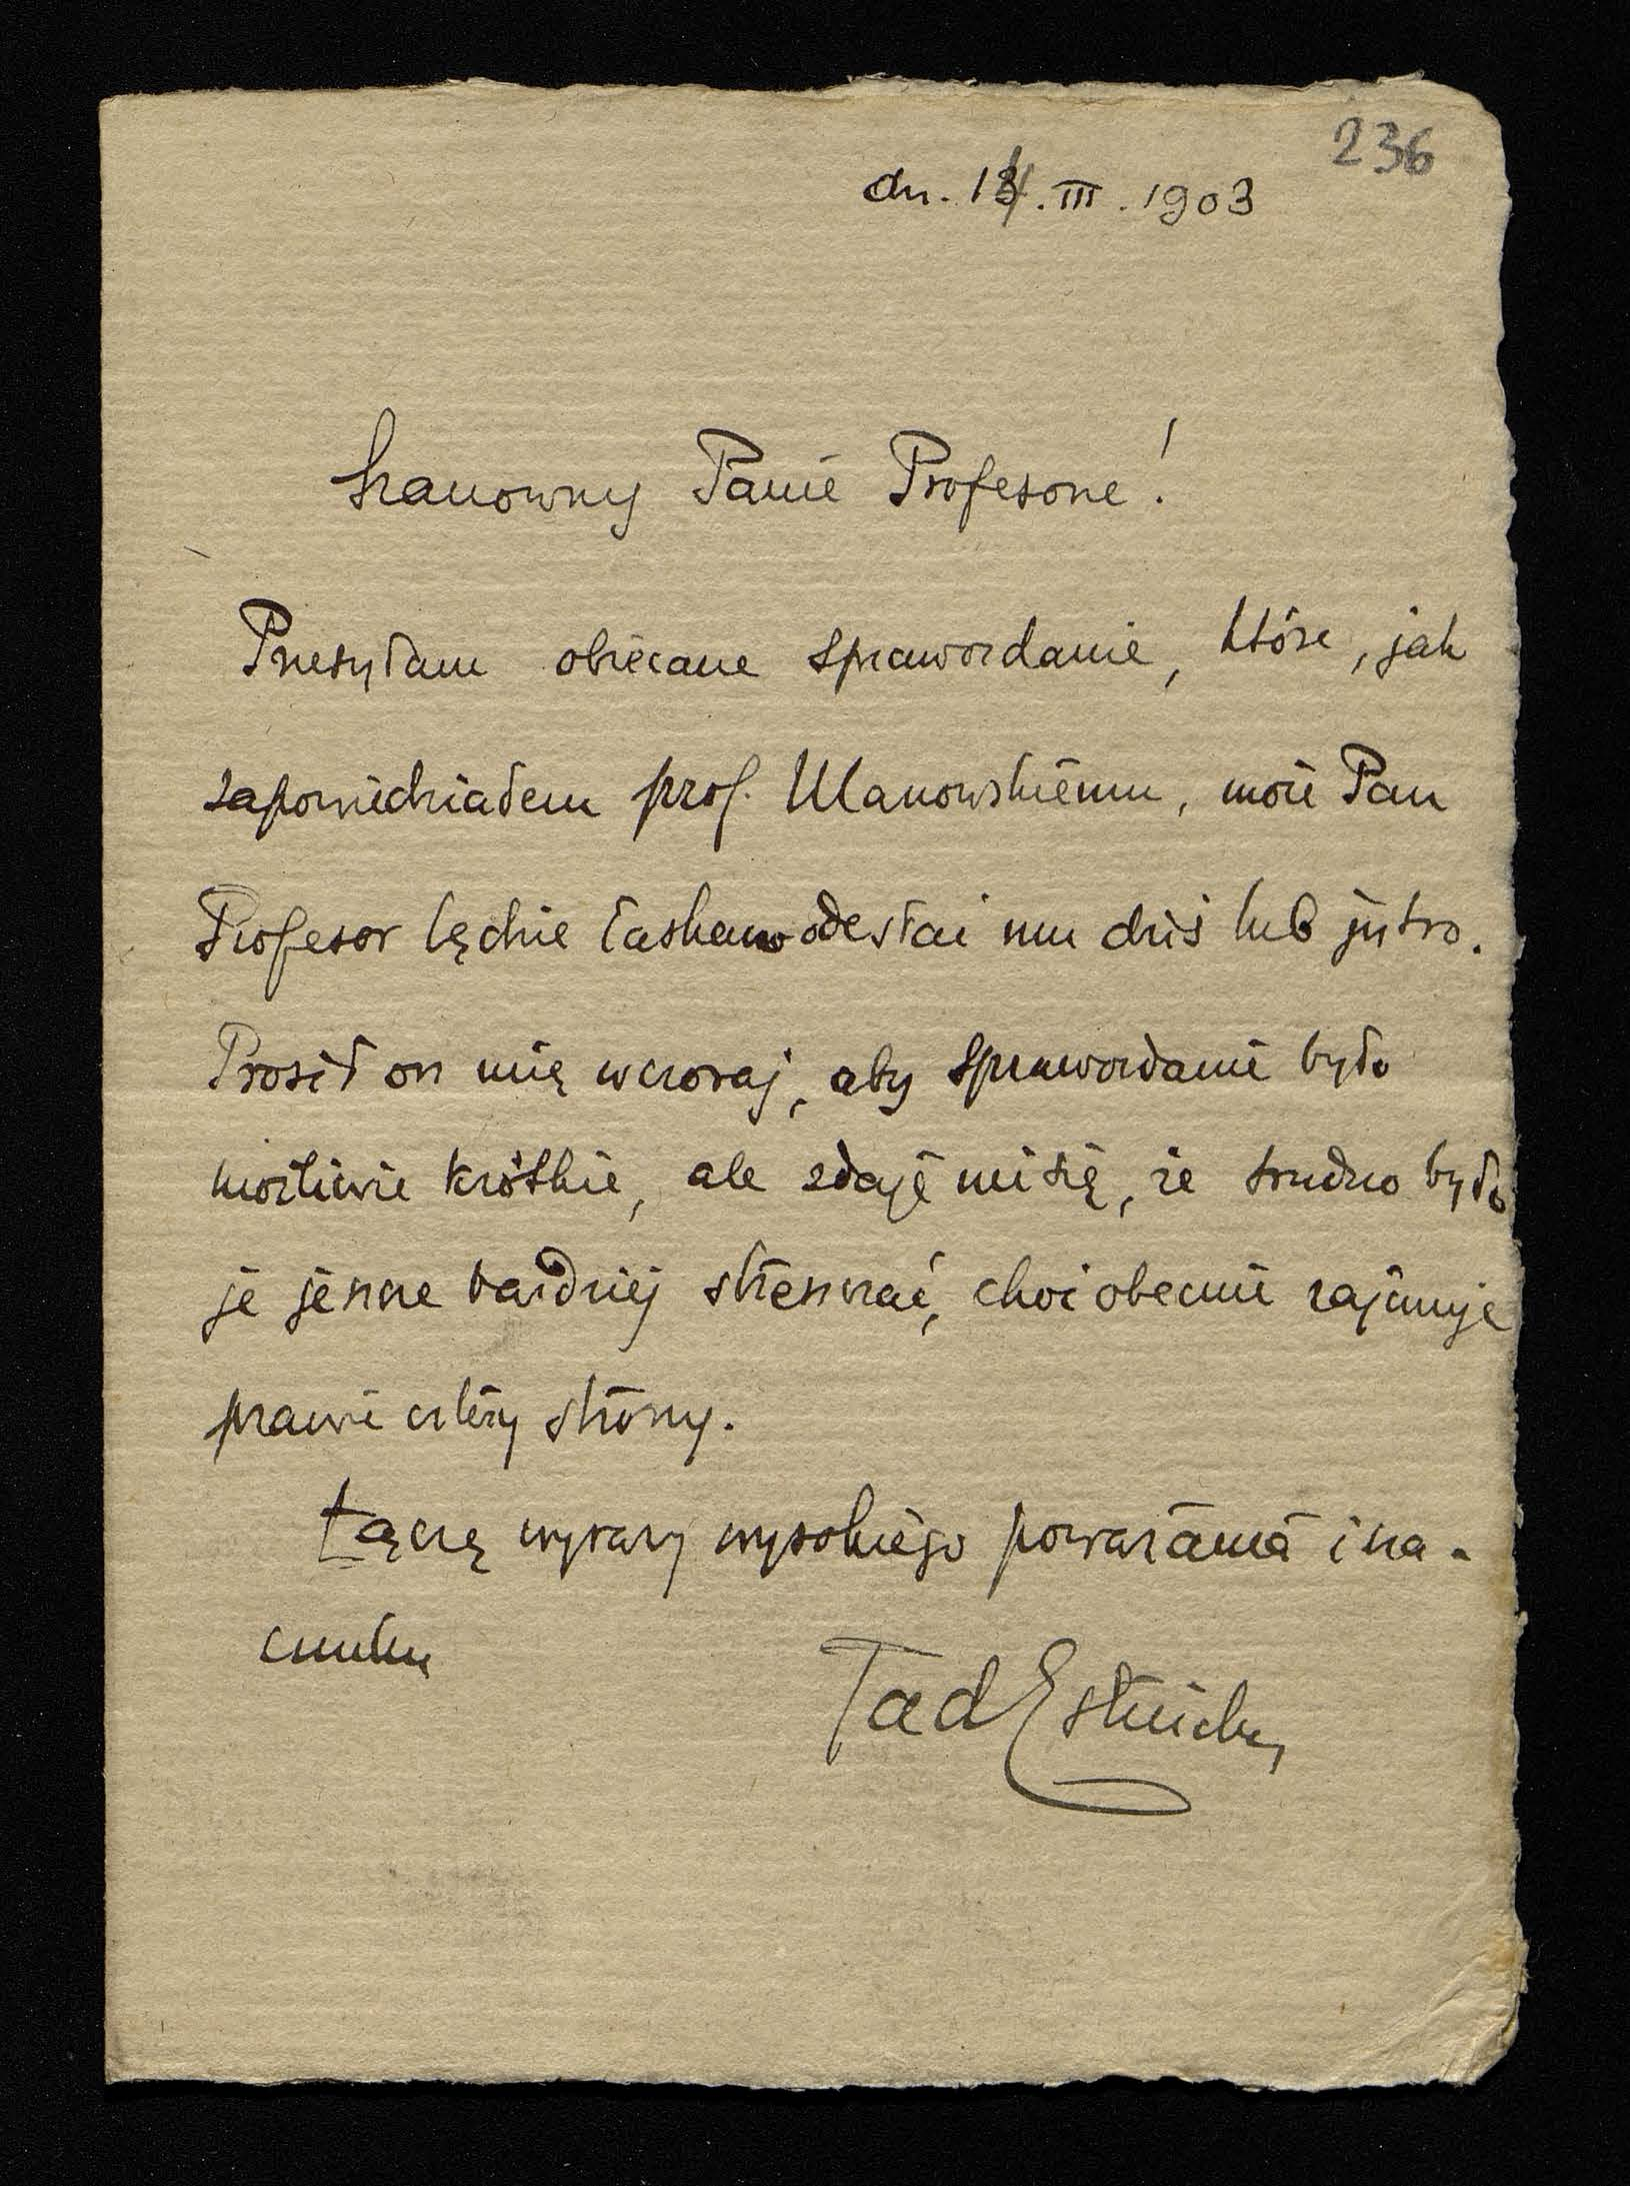 236
dn. 14. III. 1903
Szanowny Panie Profesorze!
Przesyłam obiecane sprawozdanie, które, jak
zapowiedziałem prof. Ulanowskiemu, może Pan
Profesor będzie łaskaw odesłać mu dziś lub jutro.
Prosił on mię wczoraj, aby sprawozdanie było
możliwie krótkie, ale zdaje mi się, że trudno było
je jeszcze bardziej streszczać, choć obecnie zajmuje
prawie cztéry strony.
Łączę wyrazy wysokiego poważania i sza-
cunku
Tad Estreicher